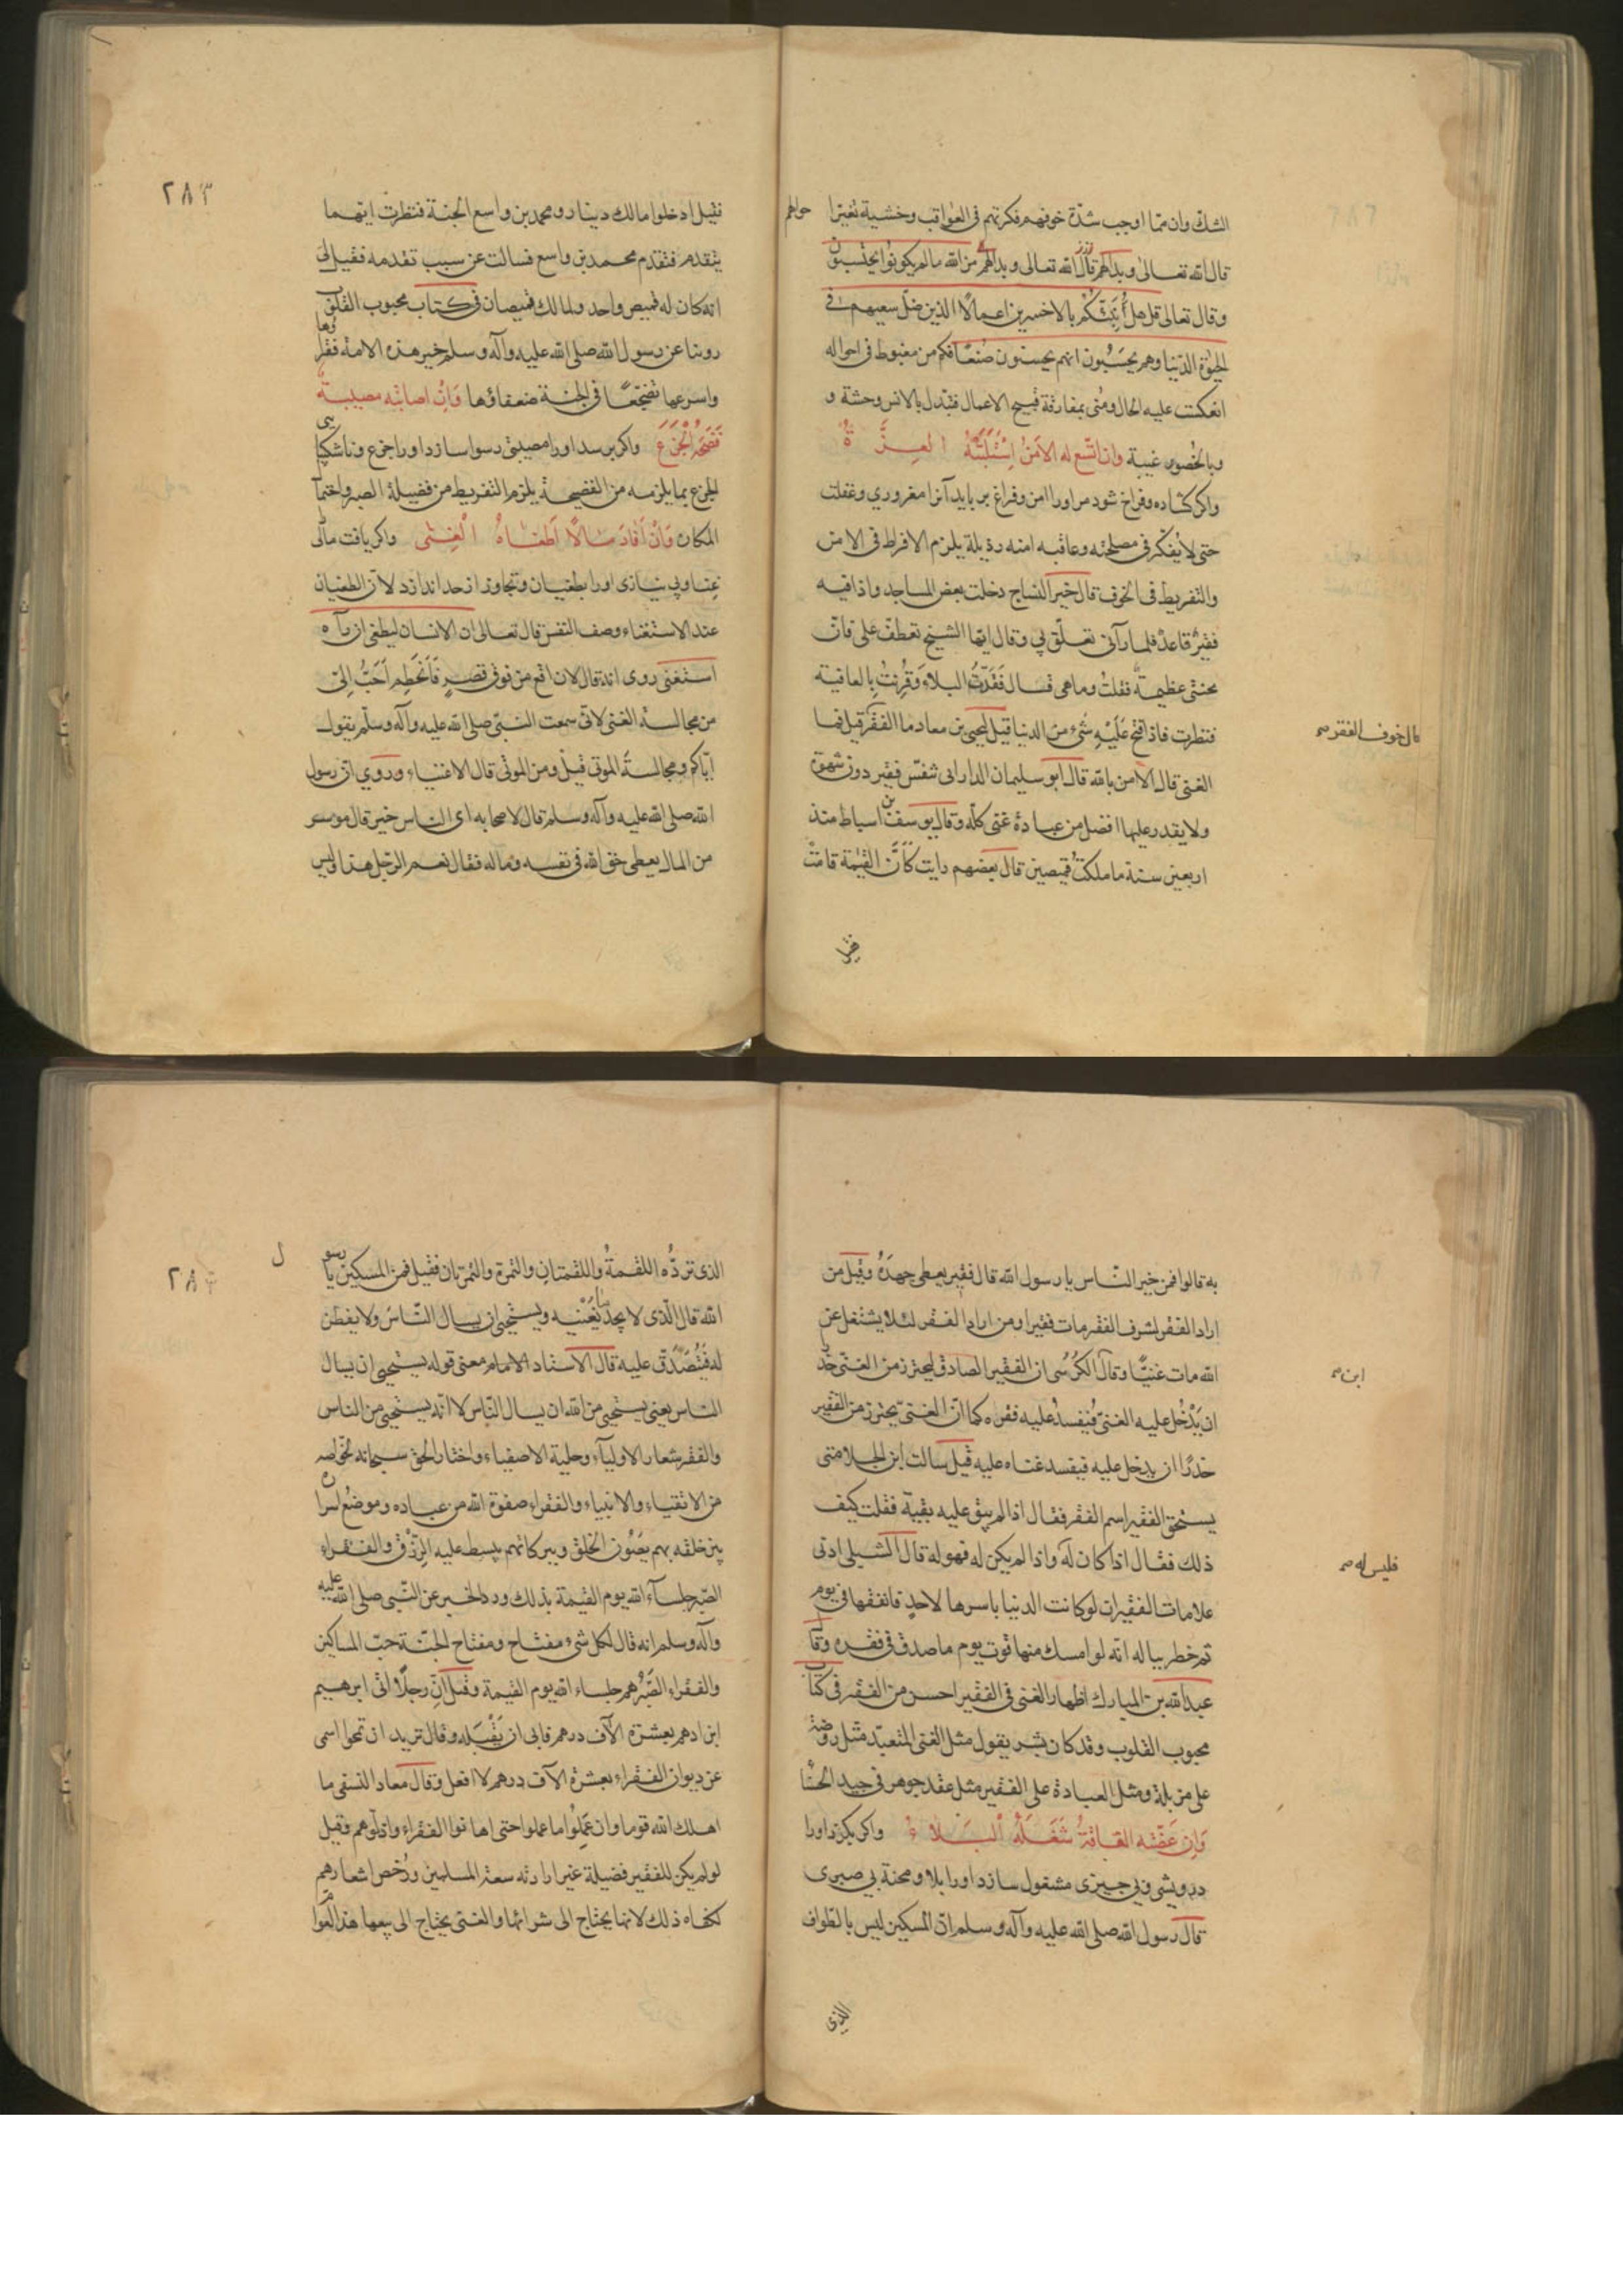 الشك وان مما اوجب شدّة خوفهم فكرتهم فى العواقب وخشية تغيّر احوالهم
قال الله تعالى وبدالهم قال الله تعالى وبدالهم من الله مالم يكونوا يحتسبون
وقال تعالى قل هل أنبئكم بالاخسرين اعمالًا الذين ضلّ سعيهم فى
الحيوة الدّنيا وهم يحسَبُون انهم يحسنون صُنعًا فكم من مغبوط فى احواله
انعكست عليه الحال ومُنى بمفارقة قبيح الاعمال فتبدّل بالانس وحشة و
وبالحضور غيبة وان اتّسع له الامنُ اِسْتَلَبَتْهُ العِزَّةُ
واكر كشاده وفراخ شود مر اورا امن وفراغ بربايد آنرا مغروري وغفلت
حتى لا يفكر فى مصلحته وعاقبه امنه رذيلة يلزم الافراط فى الامن
والتفريط فى الخوف قال خير النساج دخلت بعض المساجد واذا فيه
فقيرٌ قاعدٌ فلما رآنى تعلّق بي وقال ايّها الشيخ تعطّف علىّ فانّ
محنتى عظيمة فقلتُ وماهى فسال فَقَدتُ البلاءَ وَقُرِنتُ بالعافية
فنظرت فاذا فُتح عَلَيْهِ شىءٌ من الدنيا قيل ليحيى بن معاذ ما الفقر قيل فما
قال خوف الفقر صح
الغنى قال الامن بالله قال ابو سليمان الدارانى تنفّس فقير دون شهوة
ولا يقدر عليها افضل من عبادة غنى كلّه وقال يوسف بن اسباط منذ
اربعين سنة ما ملكتُ قميصين قال بعضهم رايت كَأَنَّ القيٰمة قامت
فقيل
٢٨٣
فقيل ادخلوا مالك دينار ومحمد بن واسع الجنة فنظرت ايّهما
يتقدم فتقدم محمد بن واسع فسالت عن سبب تقدمه فقيل لى
انه كان له قميص واحد ولمالك قميصان فى كتاب محبوب القلوب
روينا عن رسول الله صلى الله عليه وآله وسلم خير هذه الامة فقراؤها
واسرعها تضجّعًا فى الجنة ضعفاؤها وَاِنْ اصابته مصيبة
فَضَحَهُ الْجَزَعُ واكر برسد اورا مصيبتى رسوا سازد اورا جزع وناشكيبى
الجزع بما يلزمه من الفضيحة يلزم التفريط من فضيلة الصبر واحتمآ
المكاره وَاِنْ اَفَادَ مَالًا اَطغَاهُ الْغِنٰى واكر يافت مالى
غنا وبى نيازى اورا بطغيان وتجاوز از حد اندازد لانّ الطغيان
عند الاستغناء وصف النفس قال تعالى ان الانسان ليطغى ان رآه
استغنى روى انه قال لان اقع من فوق قصرٍ فَاَنحَطِم اَحَبُّ اِلىّ
من مجالسة الغنى لانّى سمعت النبّى صلى الله عليه وآله وسلّم يقول
ايّاكم ومجالسةُ الموتى قيل ومن الموتى قال الاغنياء وروي انّ رسول
الله صلى الله عليه وآله وسلم قال لاصحابه اى الناس خير قال موسر
من المال يعطى حق الله فى نفسه وماله فقال نعم الرّجل هذا وليس
به قالوا فمن خير النّاس يا رسول الله قال فقير يعطى جهدَهُ وقيل من
اراد الفقر لشرف الفقر مات فقيرا ومن اراد الفقر لئلا يشتغل عن
الله مات غنيًّا وقال الكُرْسُى ان الفقير الصادق ليحترز من الغنى حذرا
ابن صح
ان يَدْخُل عليه الغنىّ فَيفسدُ عليه فقراه كما انّ الغنىّ يحترز من الفقير
حذرًا ان يدخل عليه فيفسد غناه عليه قيل سالت ابن الجلا متى
يستحق الفقير اسم الفقر فقال اذا لم يبق عليه بقيّة فقلت كيف
ذلك فقال اذا كان لَه واذا لم يكن له فهو له قال الشبلى ادنى
فليس له صح
علامات الفقير ان لو كانت الدنيا باسرها لاحدٍ فانفقها فى يوم
ثم خطر بباله انّه لو امسك منها قوت يوم ما صدق فى فقره وقال
عبد الله بن المبارك اظهار الغنى فى الفقير احسن من الفقر فى كتاب
محبوب القلوب وقد كان بشر يقول مثل الغنى المتعبّد مثل روضة
على مزبلة ومثل العبادة على الفقير مثل عقد جوهر فى جيد الحَسْنا
وَاِن عَضّته الفَاقَةُ شَغَلَهُ الْبَلاءُ واكر بكزد اورا
درويشى وبى چيزى مشغول سازد اورا بلا ومحنة بى صبرى
قال رسول الله صلى الله عليه وآله وسلم انّ المسكين ليس بالطواف
الذى
٢٨٤
الذى تردُّه اللقمةُ واللقمتان والتمرة والتمرتان فقيل فمن المسكين يا رسول
الله قال الّذى لا يجد ما يُغنيه ويستحيى ان يسال النّاس ولا يفطن
له فَيُتُصَدّق عليه قال الاستاد الامام معنى قوله يستحيى ان يسال
الناس يعنى يستحيى من الله ان يسال النّاس لا انّه يستحيى من الناس
والفقر شعار الاوليآء وحلية الاصفياء واختار الحق سبحانه لخواصه
من الاتقياء والانبياء والفقراء صفوة الله من عباده وموضعُ اسراره
بين خلقه بهم يَصُون الخلق وببركاتهم يبسط عليه الرّزق والفقراء
الصّبر جلسآء الله يوم القيٰمة بذلك ورد الخبر عن النّبى صلى الله عليه
وآله وسلم انه قال لكل شىء مفتاح ومفتاح الجنّة حبّ المساكين
والفقراء الصُّبّر هم جلساء الله يوم القيمة وقيل انّ رجلًا اتى ابرهيم
ابن ادهم بعشرة الآف درهم فابى ان يقْبَله وقال تريد ان تمحوا اسمى
عن ديوان الفقراء بعشرة الآف درهم لا افعل وقال معاذ النسفى ما
اهلك الله قوما وان عَمِلُوا ما عملوا حتى اهانوا الفقراء واذلّوهم وقيل
لو لم يكن للفقير فضيلة غير ارادته سعة المسلمين ورُخص اشعارهم
لكفاه ذلك لانها يحتاج الى شرائها والغنى يحتاج الى بيعها هذا لعوام